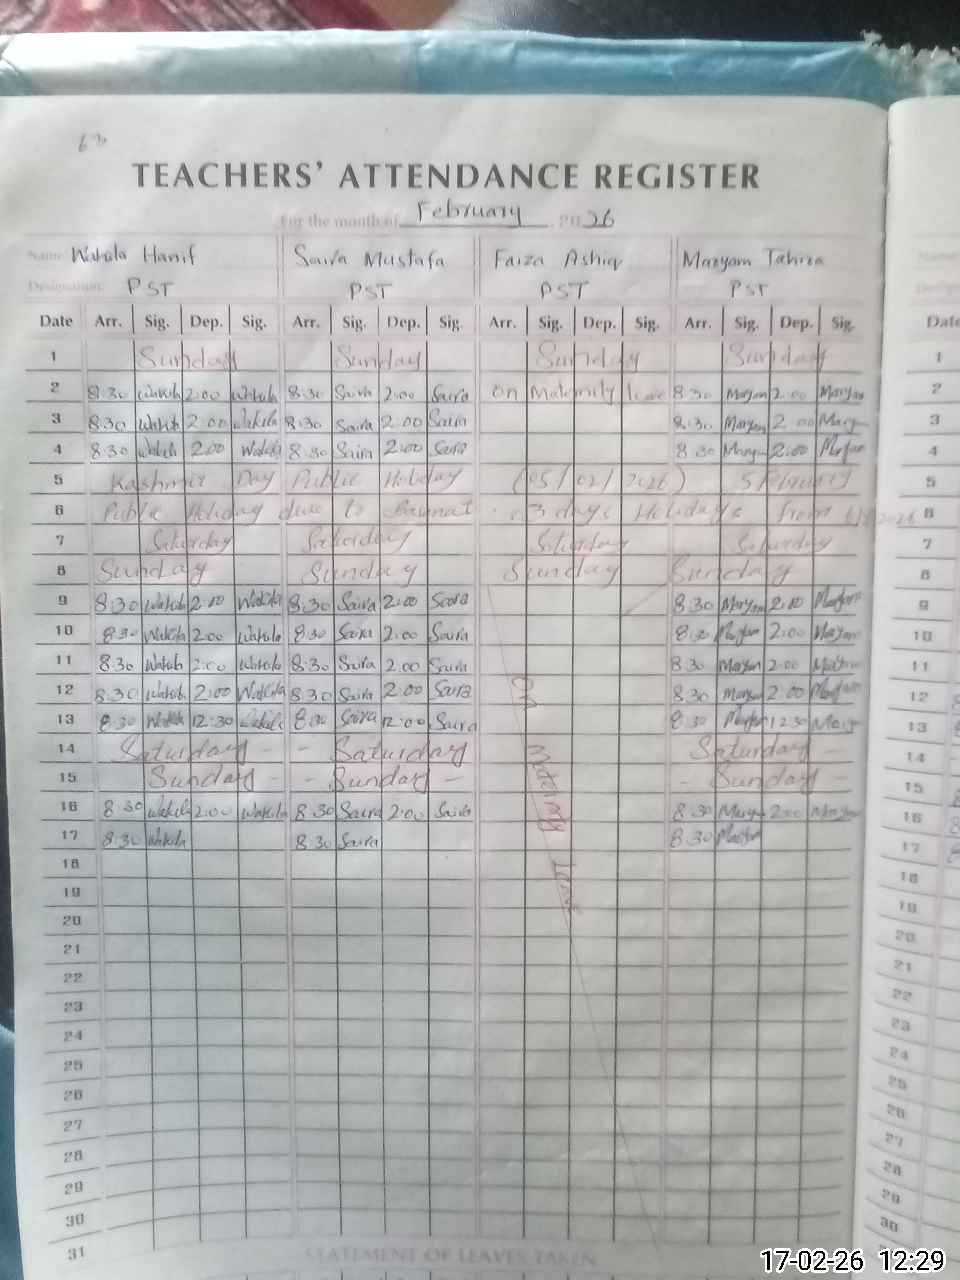 TEACHERS' ATTENDANCE REGISTER
For the month of February 2026
Name Wakila Hanif Saira Mustafa Faiza Ashiq Maryam Tahira
Designation PST PST PST PST
Date Arr. Sig. Dep. Sig. Arr. Sig. Dep. Sig. Arr. Sig. Dep. Sig. Arr. Sig. Dep. Sig. Date
1 Sunday Sunday Sunday Sunday 1
2 8:30 Wakila 2:00 Wakila 8:30 Saira 2:00 Saira on Maternity leave 8:30 Maryam 2:00 Maryam 2
3 8:30 Wakila 2:00 Wakila 8:30 Saira 2:00 Saira 8:30 Maryam 2:00 Maryam 3
4 8:30 Wakila 2:00 Wakila 8:30 Saira 2:00 Saira 8:30 Maryam 2:00 Maryam 4
5 Kashmir Day Public Holiday (05/02/2026) 5 February 5
6 Public Holiday due to Basant 3 days Holidays from 6
7 Saturday Saturday Saturday Saturday 7
8 Sunday Sunday Sunday Sunday 8
9 8:30 Wakila 2:00 Wakila 8:30 Saira 2:00 Saira 8:30 Maryam 2:00 Maryam 9
10 8:30 Wakila 2:00 Wakila 8:30 Saira 2:00 Saira 8:30 Maryam 2:00 Maryam 10
11 8:30 Wakila 2:00 Wakila 8:30 Saira 2:00 Saira 8:30 Maryam 2:00 Maryam 11
12 8:30 Wakila 2:00 Wakila 8:30 Saira 2:00 Saira On 8:30 Maryam 2:00 Maryam 12
13 8:30 Wakila 12:30 Wakila Saira 12:00 Saira 8:30 Maryam 12:30 Maryam 13
14 Saturday - - Saturday Maternity Saturday - 14
15 Sunday - - Sunday - - Sunday 15
16 8:30 Wakila 2:00 Wakila 8:30 Saira 2:00 Saira 8:30 Maryam 2:00 Maryam 16
17 8:30 Wakila 8:30 Saira 8:30 Maryam 17
18 Leave 18
19 19
20 20
21 21
22 22
23 23
24 24
25 25
26 26
27 27
28 28
29 29
30 30
31
STATEMENT OF LEAVES TAKEN
17-02-26 12:29